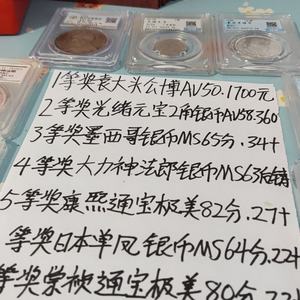 1等奖袁大头公博AV50.1700元
2等奖光绪元宝2角银币AV58.360
3等奖墨西哥银币MS65分.34+
4等奖大力神法郎银币MS63
5等奖康熙通宝极美82分.27+
等奖日本单凤银币MS64分.22+
等奖崇祯通宝极美80分.22